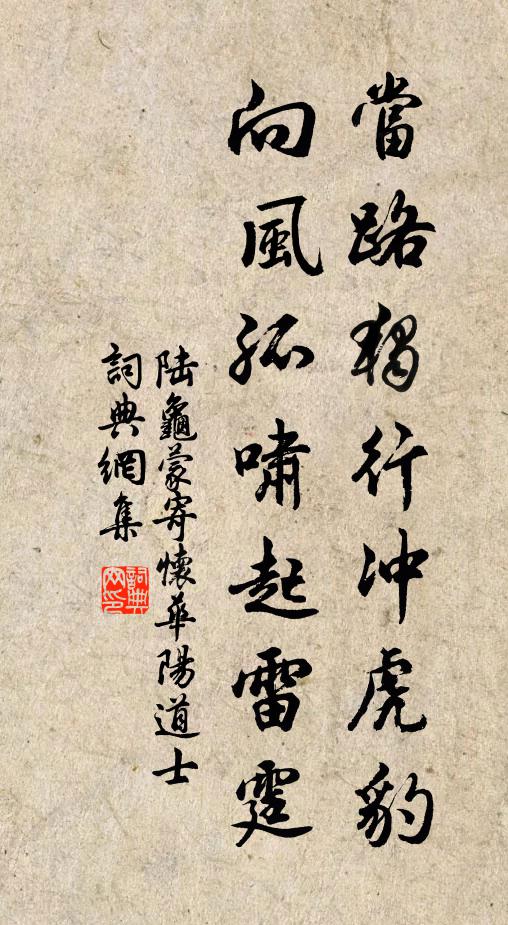 當路獨行冲虎豹
向風孤嘯起雷霆
陆龜蒙寄懷華陽道士
詞典網集
詞典
网印